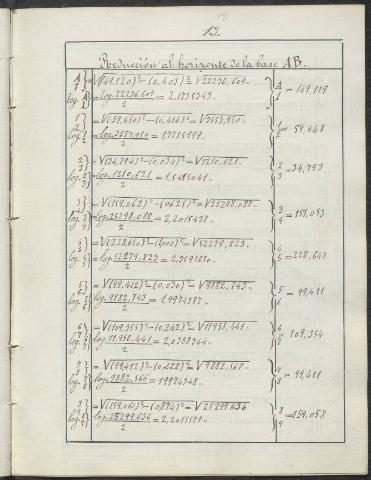 13
12
Reducción al horizonte de la base AB.
A/1 } = √(149,120)² − (0,403)² = √22236,609 } A/1 = 149,119
log. A/1 } = log. 22236.609 / 2 = 2,1735343.
1/2 } = √(59,650)² − (0,414)² = √3557,950 } 1/2 = 59,648
log. 1/2 } = log. 3557.950 / 2 = 1,7755999.
2/3 } = √(34,794)² − (0,034)² = √1210,621 } 2/3 = 34,793
log. 2/3 } = log. 1210,621 / 2 = 1,5415041.
3/4 } = √(159,062)² − (0625)² = √25298,088 } 3/4 = 159,053
log. 3/4 } = log. 25298,088 / 2 = 2,2015438.
4/5 } = √(228,650)² − = √52279,823 } 4/5 = 228,647
log. 4/5 } = / 2 = 2,3591670.
5/6 } = √(99,412)² − (0,030)² = √9882,743 } 5/6 = 99,411
log. 5/6 } = log. 9882,743 / 2 = 1,9974387.
6/7 } = √(109,355)² − (0,242)² = √11958,441 } 6/7 = 109,354
log. 6/7 } = log. 11.958.441 / 2 = 2,0388364.
7/8 } = √(99,412)² − (0,222)² = √ } 7/8 = 99,411
log. 7/8 } = / 2 = 19974348.
8/9 } = √(159,061)² − (0,874)² = √25299636 } 8/9 = 159,058
log. 8/9 } = log. 25299.636 / 2 = 2,2015571.